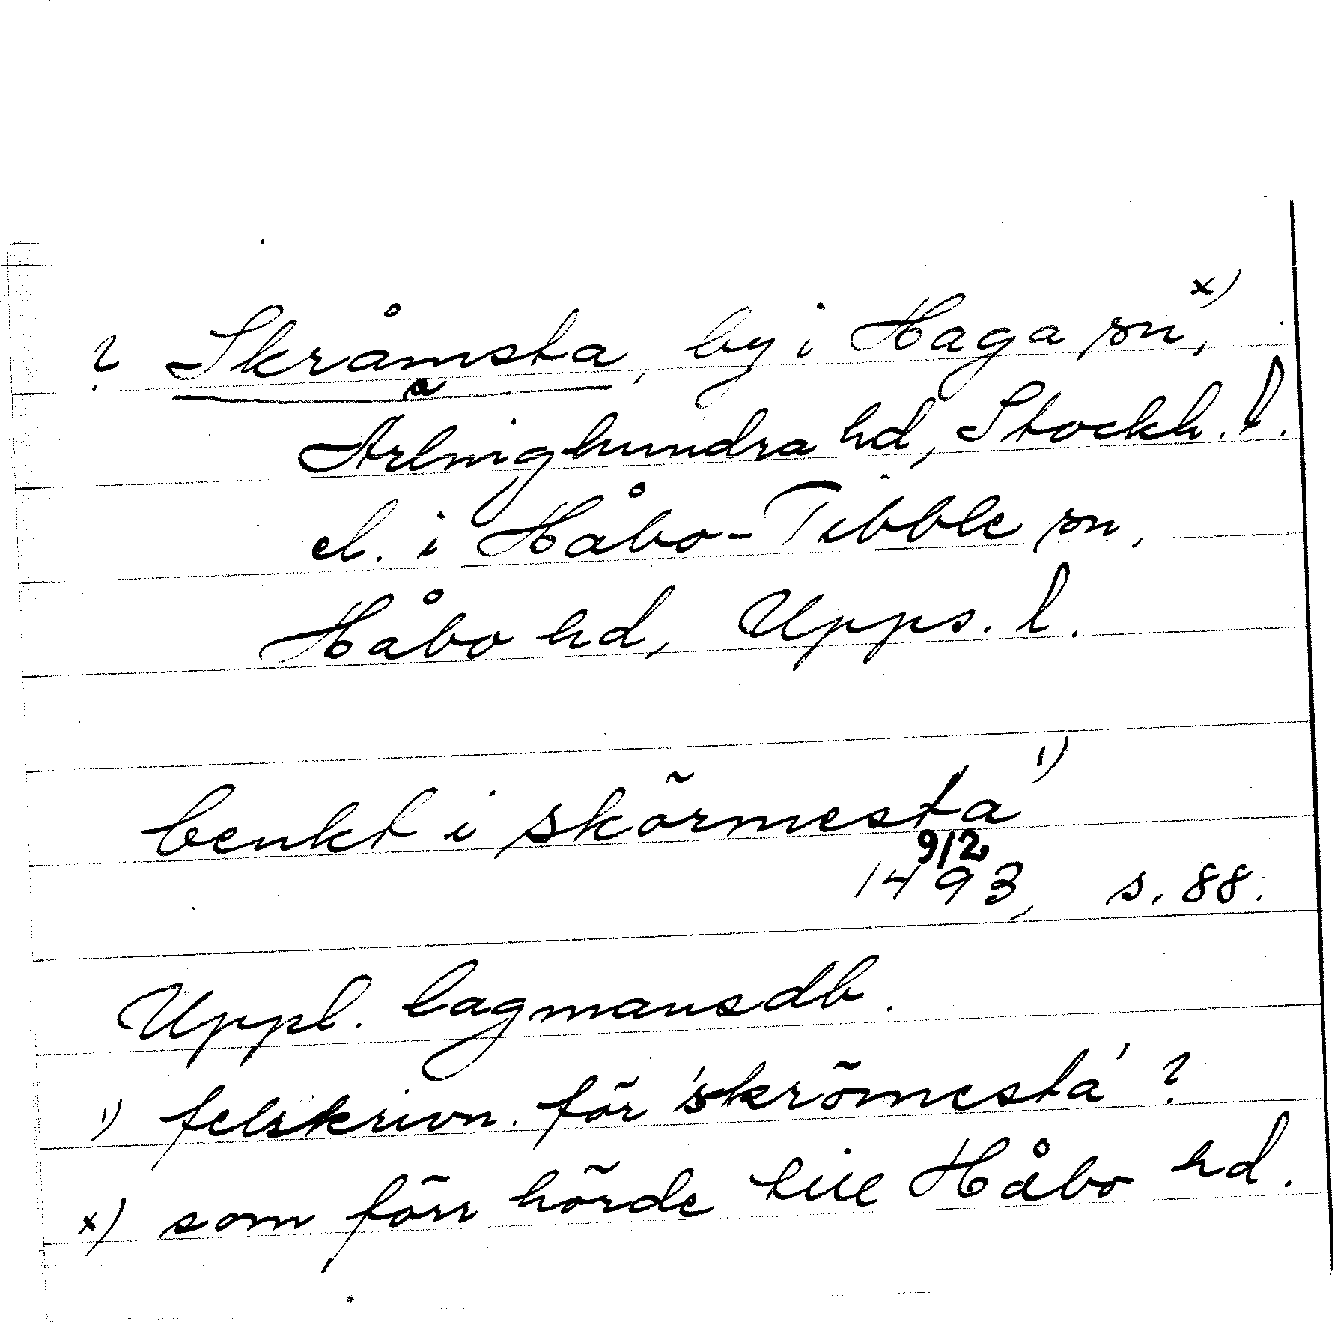 ? Skråmsta, by i Haga sn, x)
Ärlinghundra hd, Stockh. l.
el. i Håbo-Tibble sn,
Håbo hd, Upps. l.
benkt i skörmesta 1)
9/2
1493, s. 88.
Uppl. lagmansdb.
1) felskrivn. för 'skrömesta' ?
x) som förr hörde till Håbo hd.